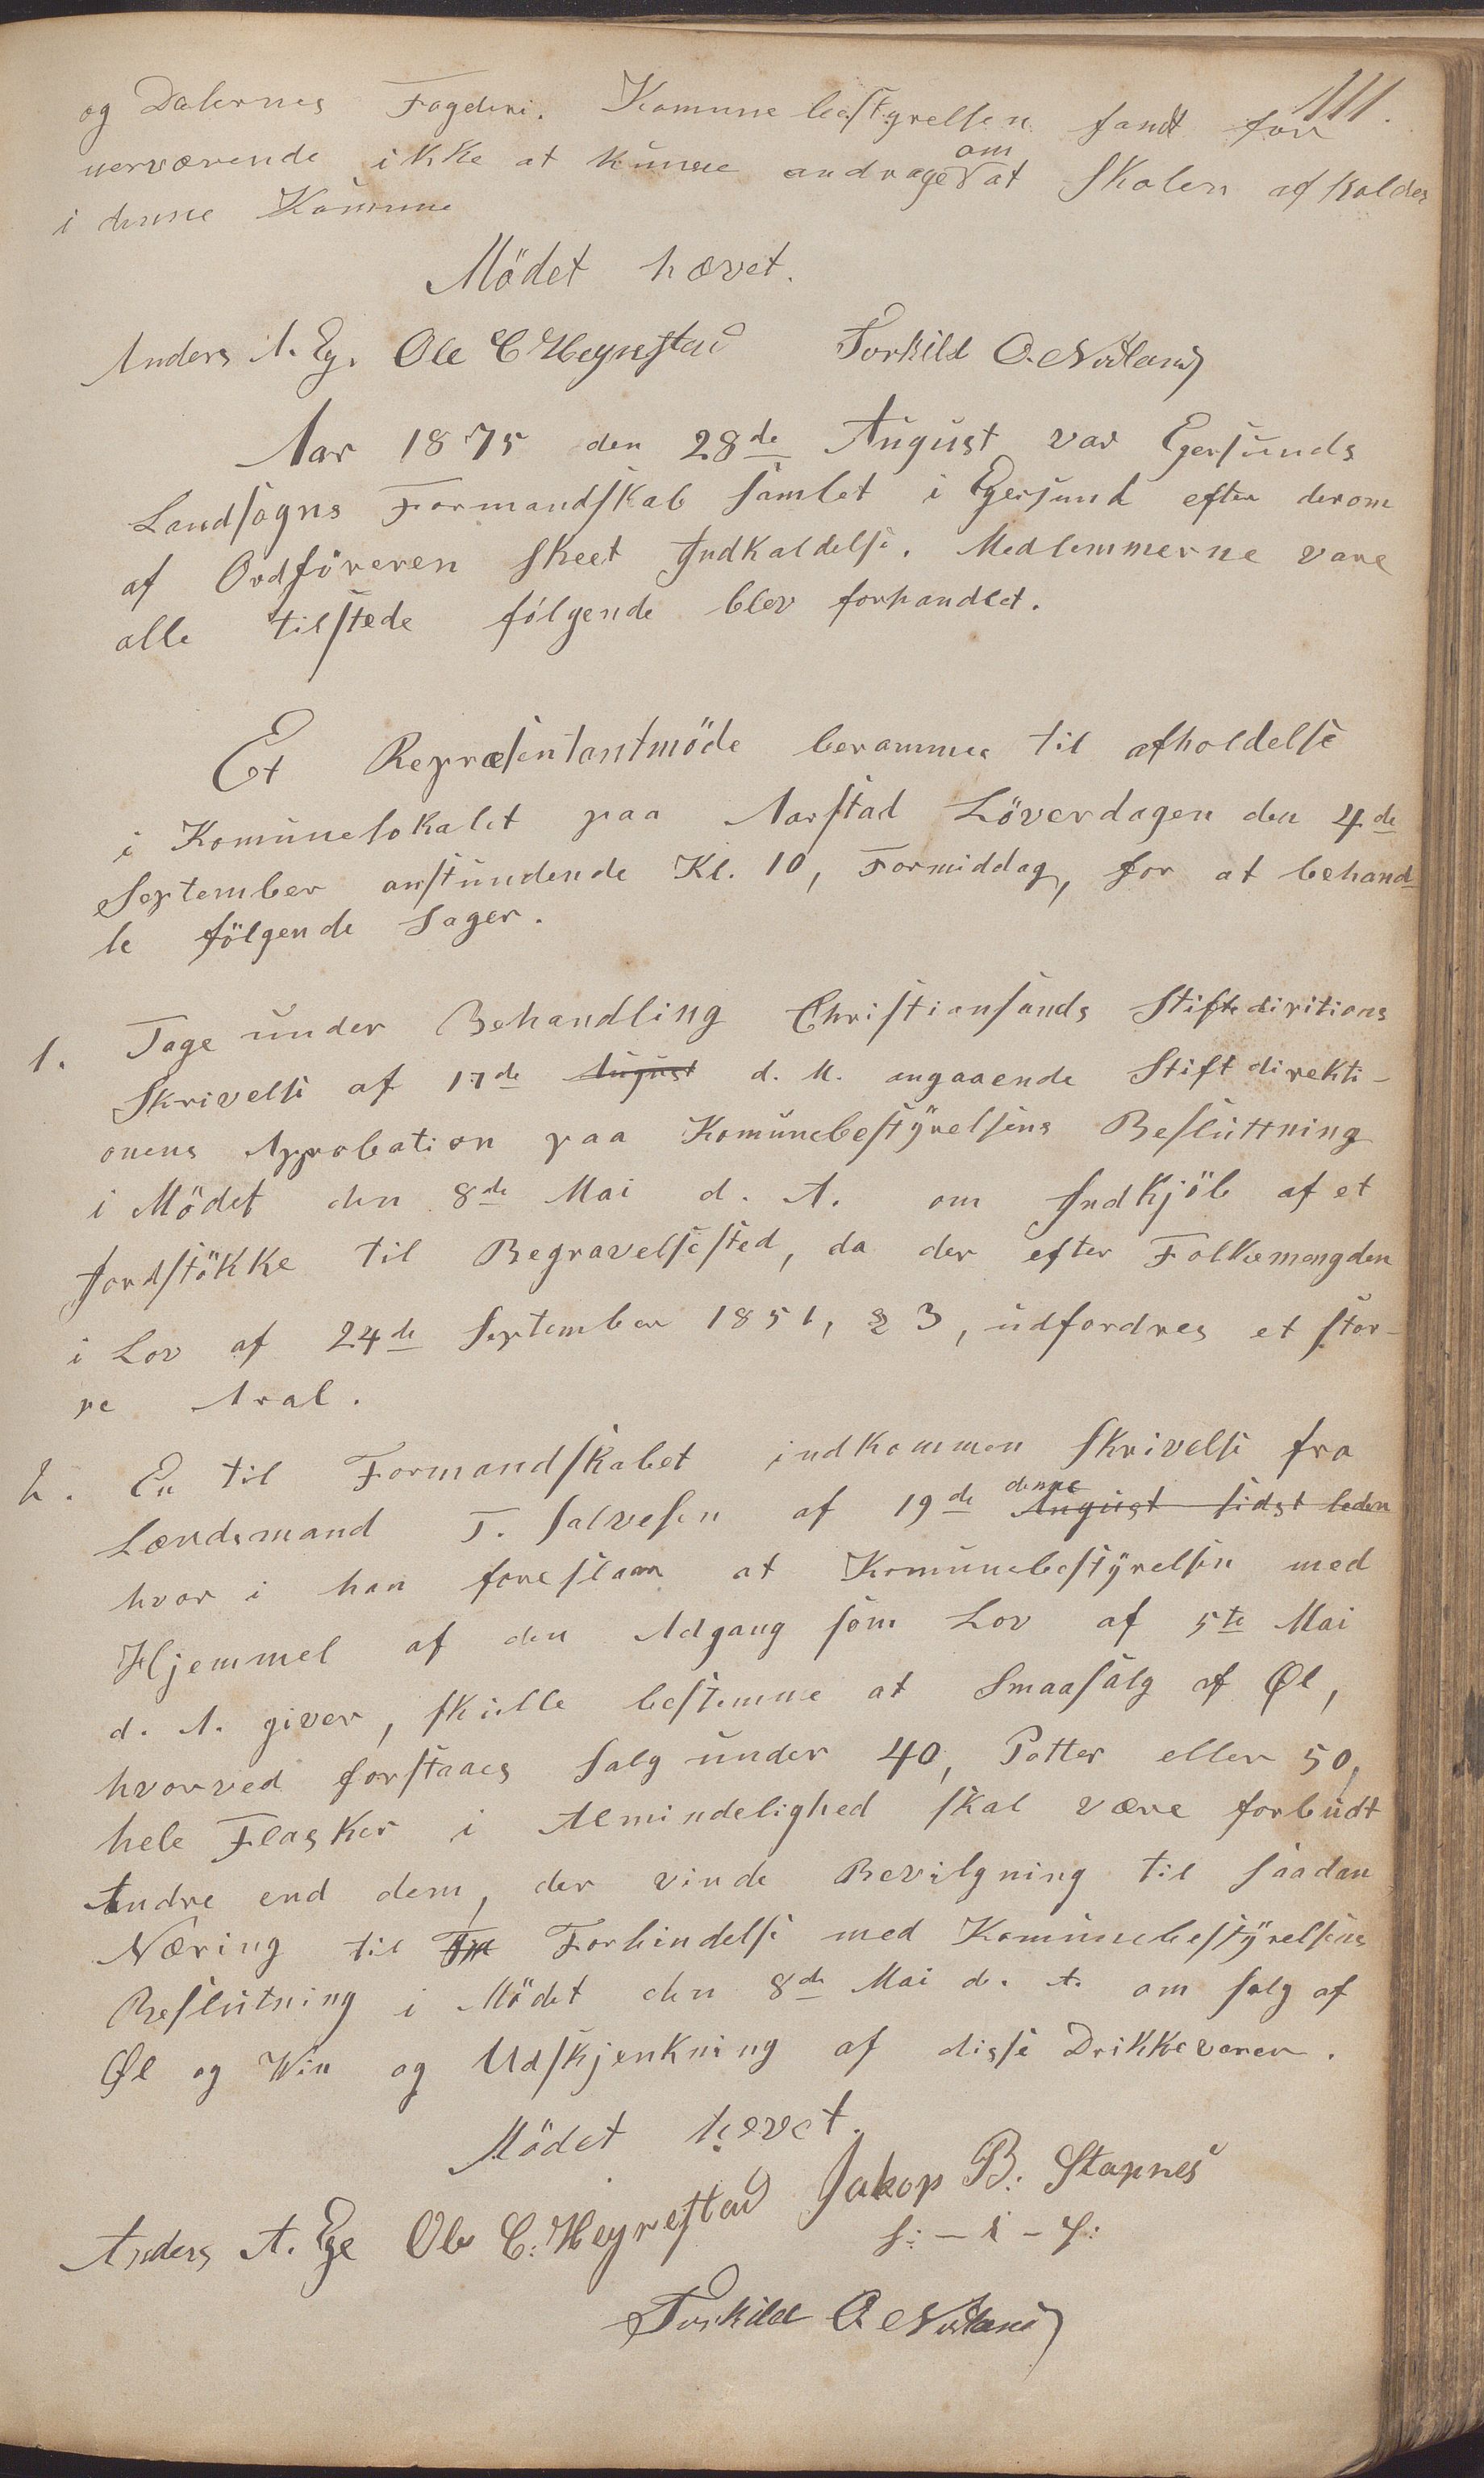 111.
og Dalernes Fogderi. Komunebestyrelsen fandt for
nerværende ikke at kunne andrage om at Skolen afholdes
i denne Komune
Mödet hævet.
Anders A. Eg. Ole C Hegrestad Torkild O. Nodland
Aar 1875 den 28de August var Egersunds
Landsogns Formandskab samlet i Egersund efter derom
af Ordföreren skeet Indkaldelse. Medlemmerne vare
alle tilstede fölgende blev forhandlet.
Et Repræsentantmöde berammes til afholdelse
i Komunelokalet paa Aarstad Löverdagen den 4de
September anstundende Kl. 10, Formiddag, for at behand-
le fölgende Sager.
1. Tage under Behandling Christiansands Stiftsdiritions
Skrivelse af 17de August d. M. angaaende Stiftdirekti-
onens Approbation paa Komunebestyrelsens Besluttning
i Mödet den 8de Mai d. A. om Indkjöb af et
Jordstökke til Begravelsested, da der efter Folkemengden
i Lov af 24de September 1851, § 3, udfordres et stör-
re Aral.
2. En til Formandskabet indkommen Skrivelse fra
Lændsmand T. Salvesen af 19de denne August sidst leden
hvor i han foreslaar at Komunebestyrelsen med
Hjemmel af den Adgang som Lov af 5te Mai
d. A. giver, skulle bestemme at Smaasalg af Øl,
hvorved forstaaes Salg under 40, Potter eller 50,
hele Flasker i Almindelighed skal være forbudt
Andre end dem, der vinde Bevilgning til saadan
Næring til Forbindelse med Komunebestyrelsens
Beslutning i Mödet den 8de Mai d. A. om Salg af
Øl og Win og Udskjenkning af disse Drikkevarer.
Mödet hævet.
Anders A. Ege Ole C. Hegrestad Jakop B. Stapnes
Torkild O. Nodland